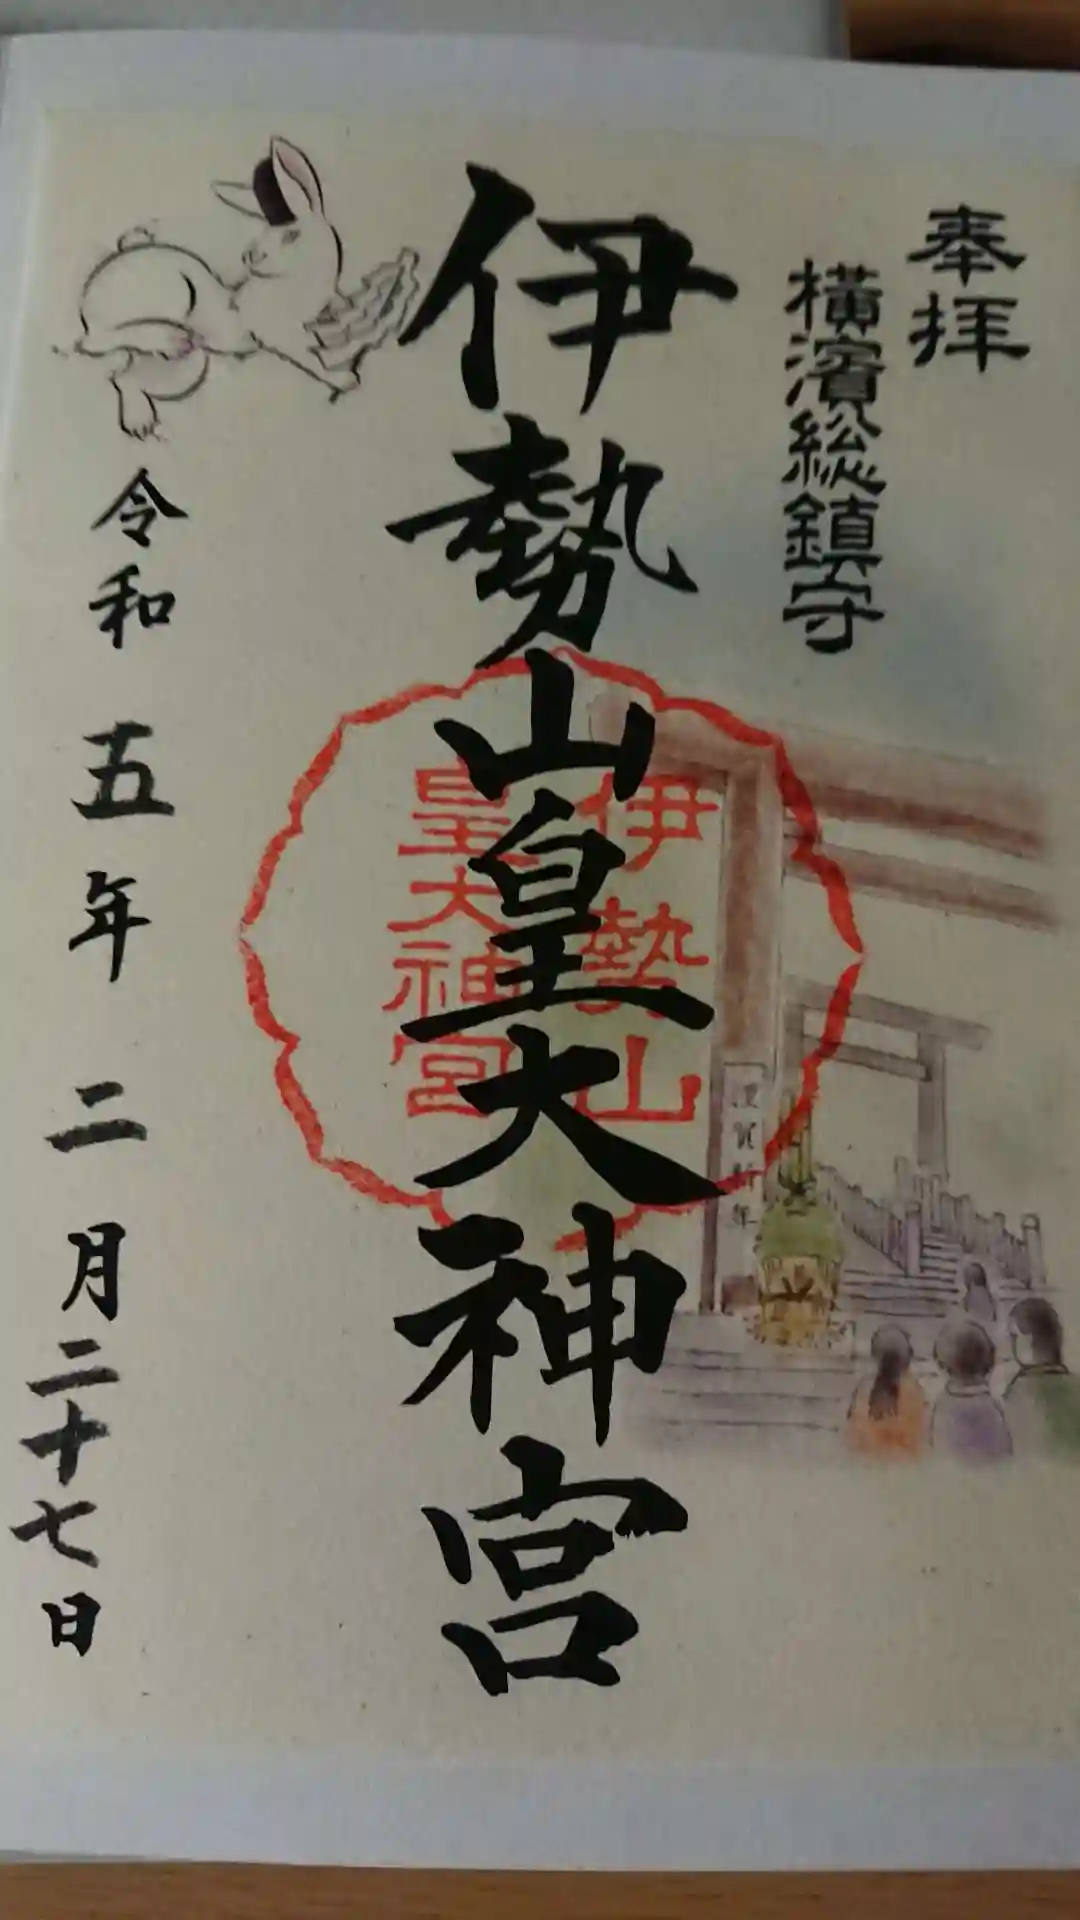 奉拝
横濱総鎮守
伊勢山皇大神宮
伊勢山
皇大神宮
謹賀新年
令和五年二月二十七日